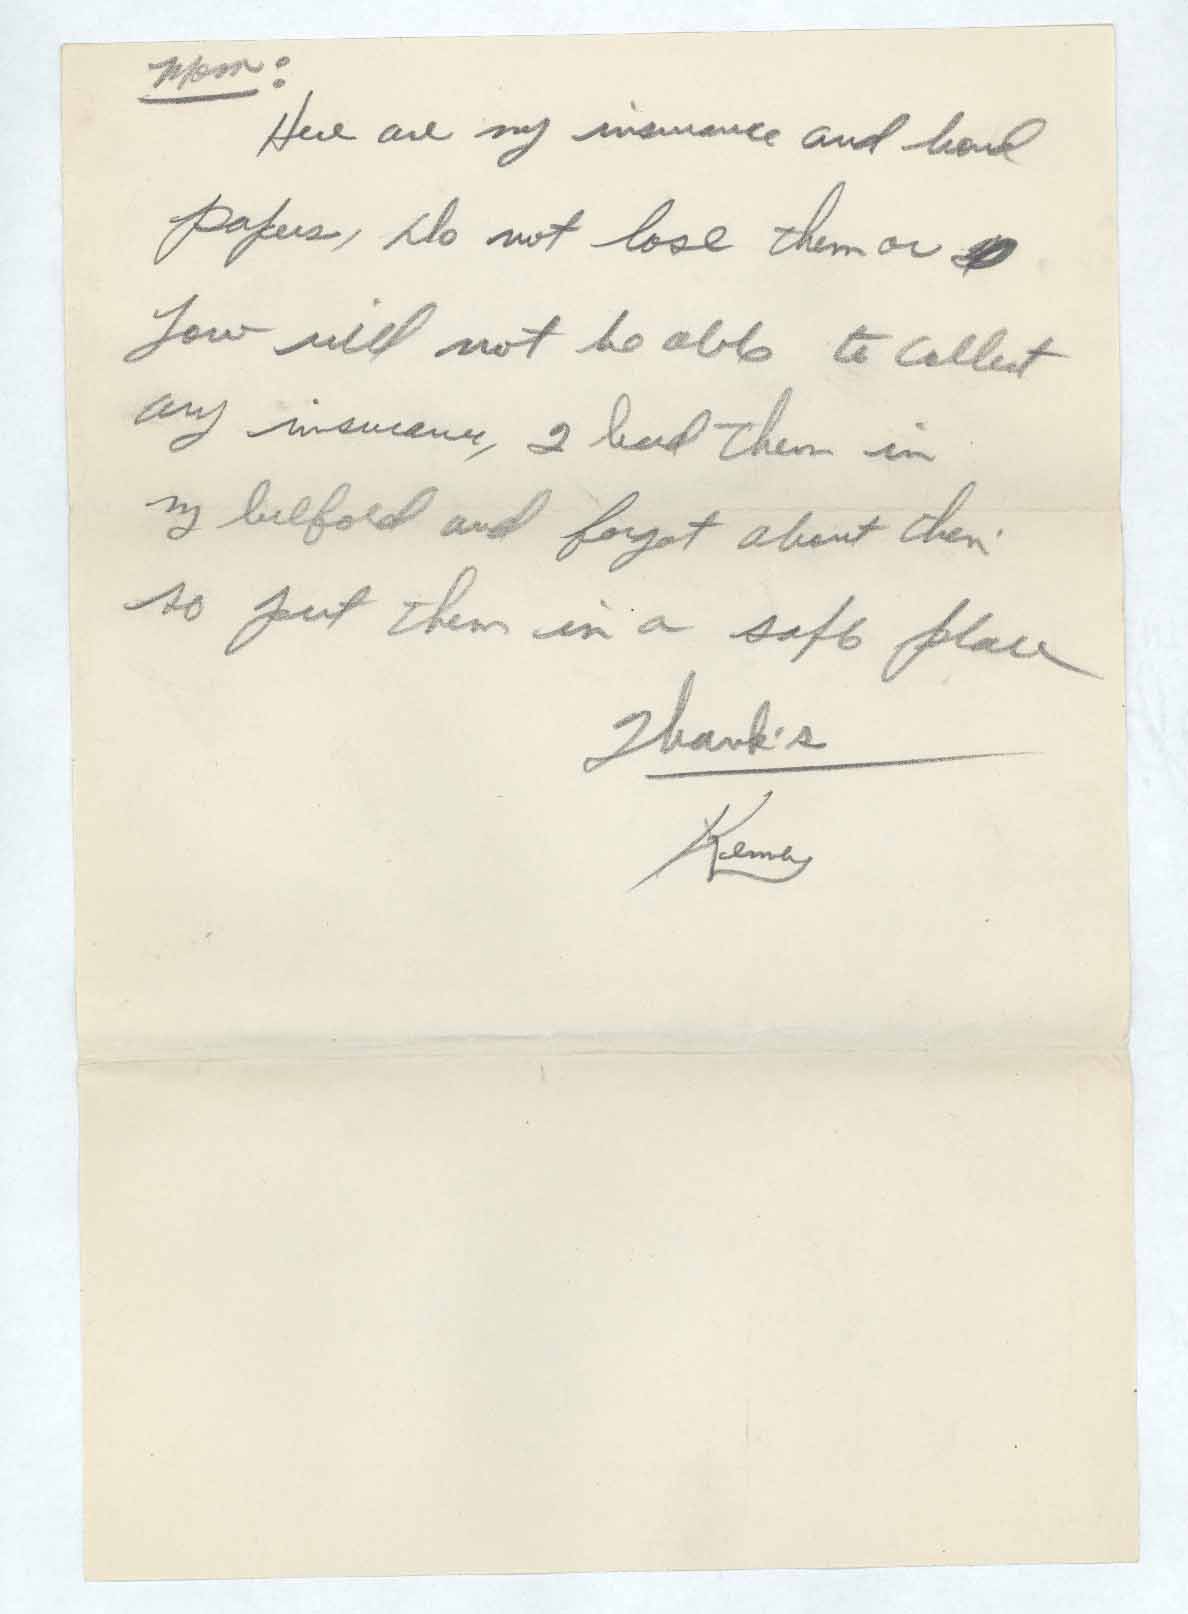 Mom:
Here are my insurance and bond
papers, Do not lose them or
you will not be able to collect
any insurance, I had them in
my bilfold and forgot about them
so put them in a safe place
Thank's